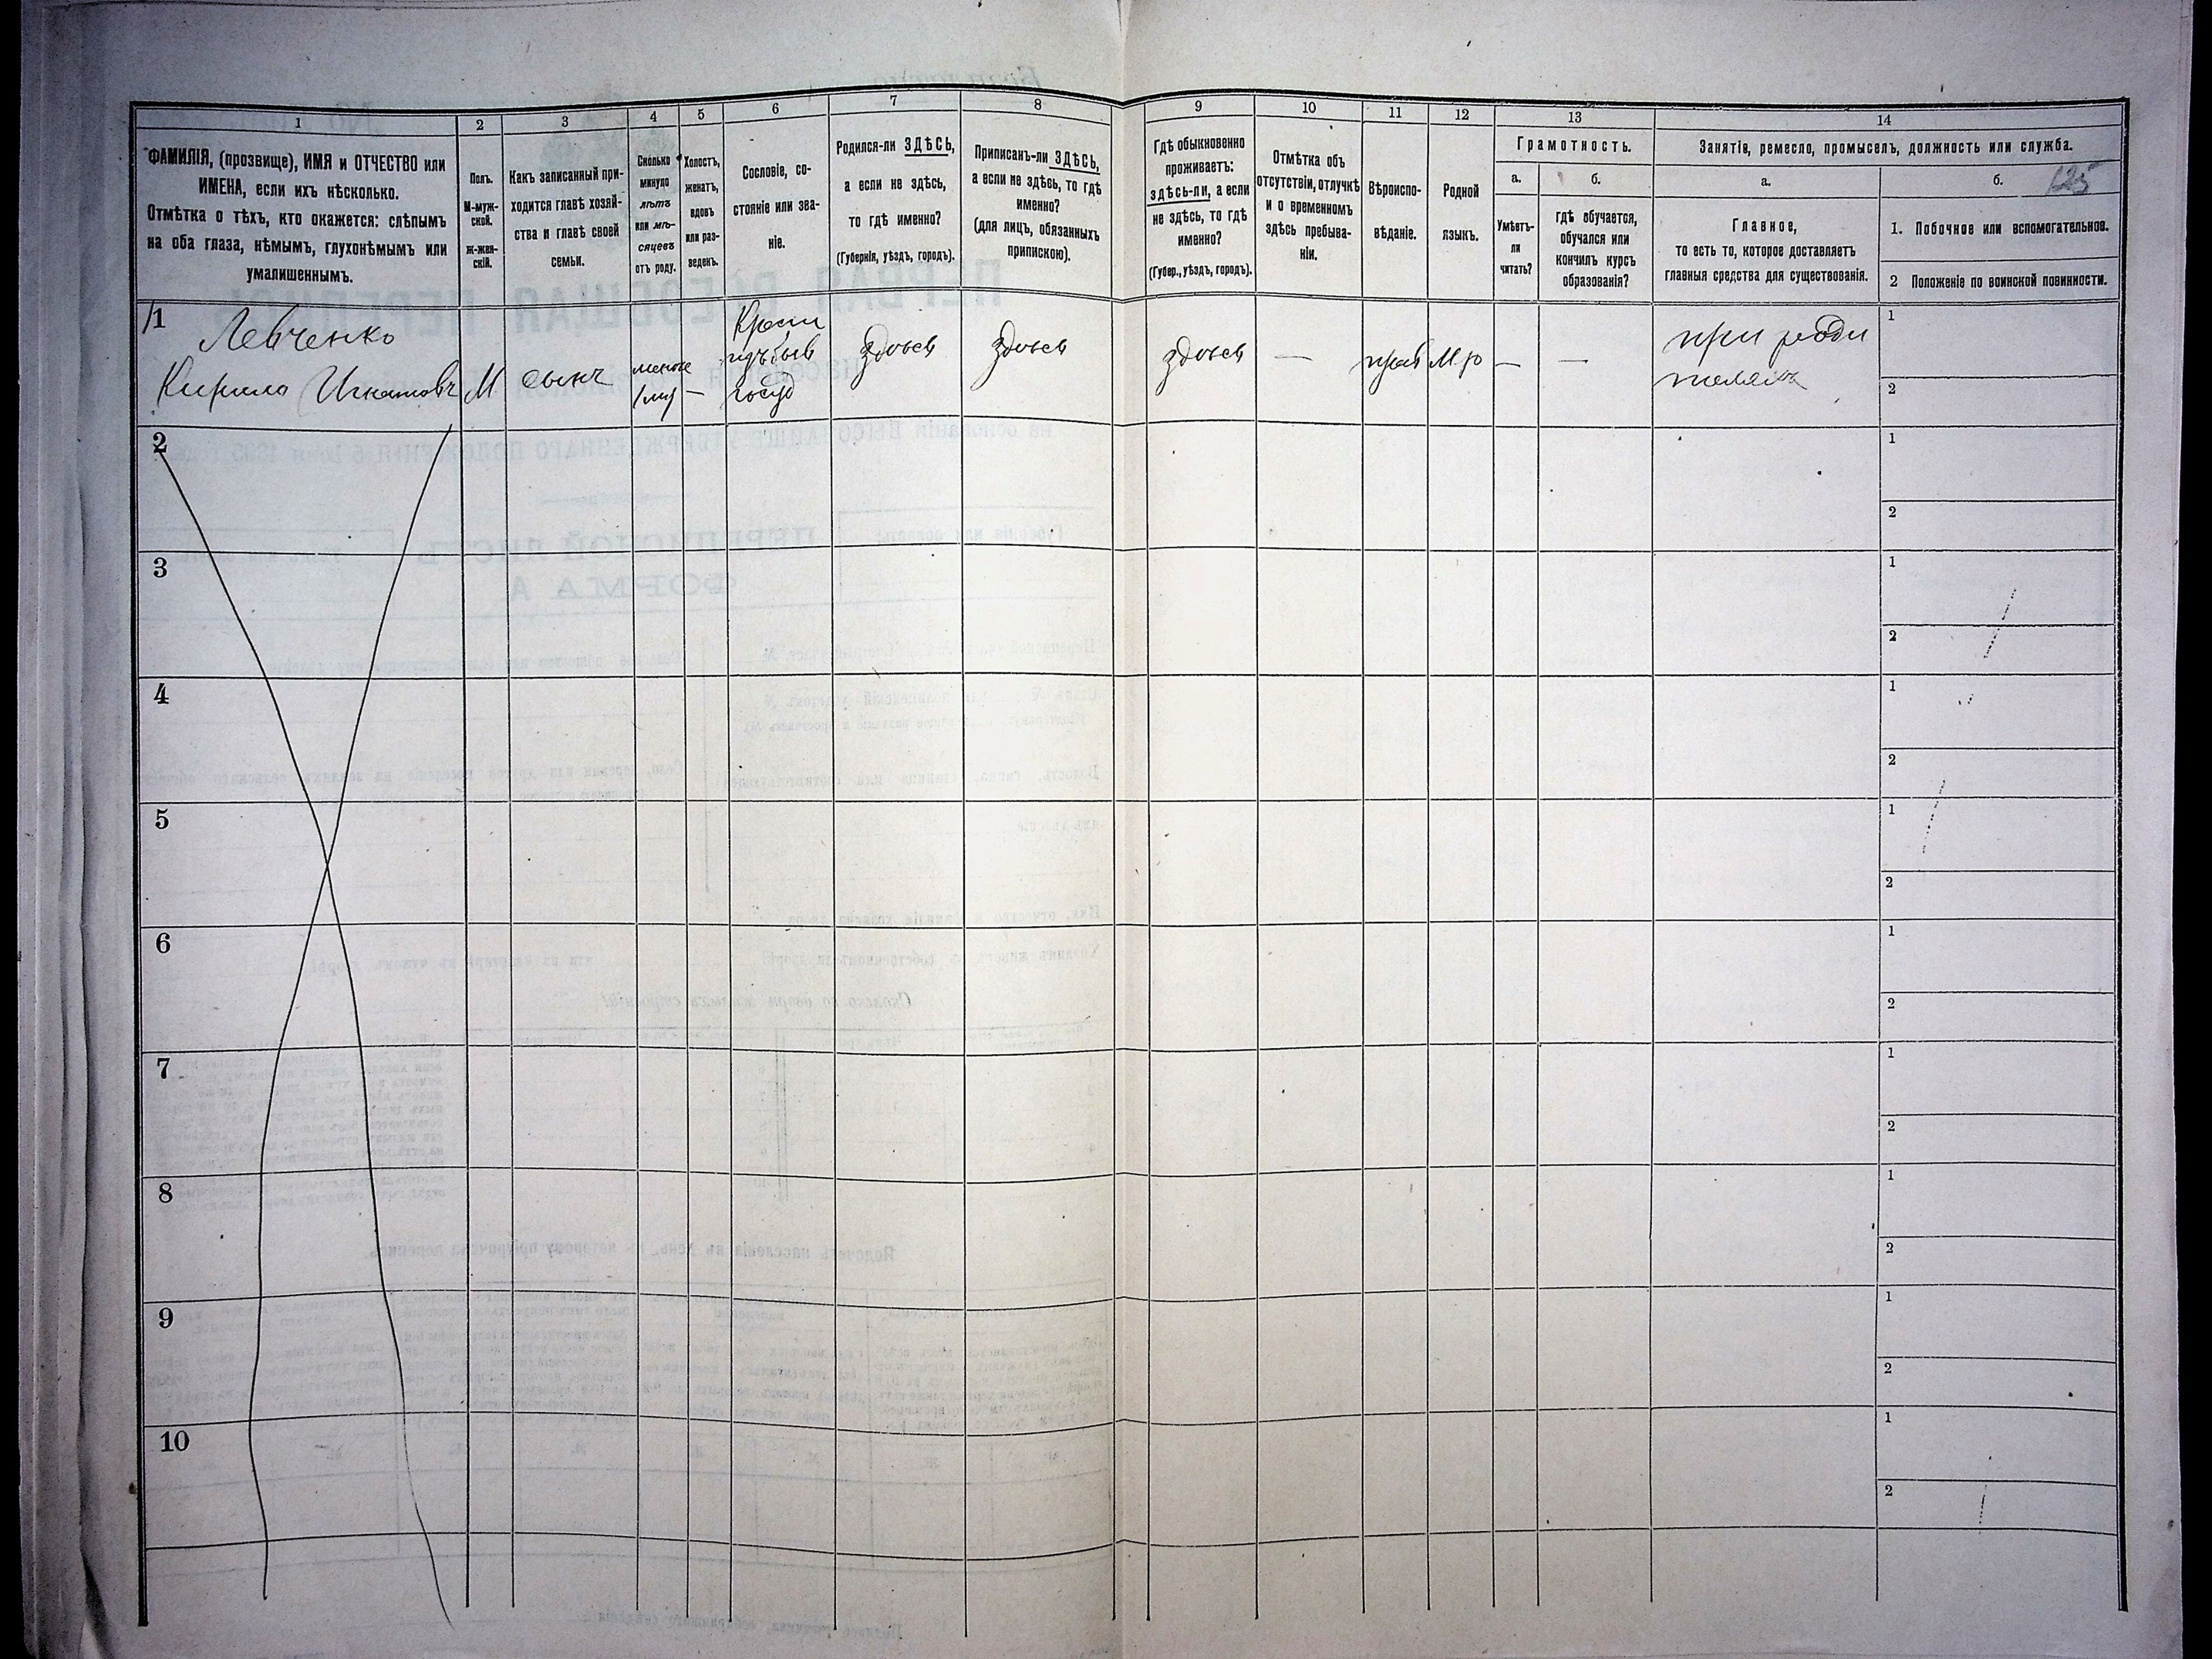 125
1
2
3
4
5
6
7
8
9
10
11
12
13
14
ФАМИЛІЯ, (прозвище), ИМЯ и ОТЧЕСТВО или
ИМЕНА, если ихъ нѣсколько.
Отмѣтка о тѣхъ, кто окажется: слѣпымъ
на оба глаза, нѣмымъ, глухонѣмымъ или
умалишеннымъ.
Полъ.
М-муж-
ской.
ж-жен-
скій.
Какъ записанный при-
ходится главѣ хозяй-
ства и главѣ своей
семьи.
Сколько
минуло
лѣтъ
или мѣ-
сяцевъ
отъ роду.
Холостъ,
женатъ,
вдовъ
или раз-
веденъ.
Сословіе, со-
стояніе или зва-
ніе.
Родился-ли ЗДѢСЬ,
а если не здѣсь,
то гдѣ именно?
(Губернія, уѣздъ, городъ).
Приписанъ-ли ЗДѢСЬ,
а если не здѣсь, то гдѣ
именно?
(для лицъ, обязанныхъ
припискою).
Гдѣ обыкновенно
проживаетъ:
здѣсь-ли, а если
не здѣсь, то гдѣ
именно?
(Губер., уѣздъ, городъ).
Отмѣтка объ
отсутствіи, отлучкѣ
и о временномъ
здѣсь пребыва-
ніи.
Вѣроиспо-
вѣданіе.
Родной
языкъ.
Грамотность.
а.
Умѣетъ-
ли
читать?
б.
гдѣ обучается,
обучался или
кончилъ курсъ
образованія?
Занятіе, ремесло, промыселъ, должность или служба.
а.
Главное,
то есть то, которое доставляетъ
главныя средства для существованія.
б.
1. Побочное или вспомогательное.
2 Положеніе по воинской повинности.
1
Левченко
Кирило Игнатовъ
М
сынъ
менѣе
1 мѣ
—
Крест
изъ быв
госуд
здѣсь
здѣсь
здѣсь
—
прав
М р
—
—
при роди
теляхъ
1
2
2
1
2
3
1
2
4
1
2
5
1
2
6
1
2
7
1
2
8
1
2
9
1
2
10
1
2